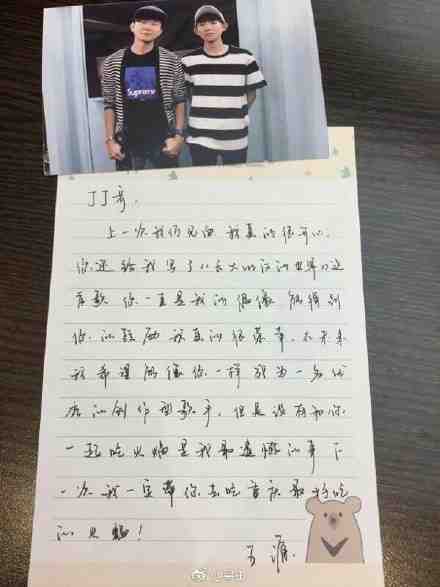 Supreme
JJ哥,
上一次我们见面 我真的很开心,
你还给我写了《长大的世界》这
首歌 你一直是我的偶像 能得到
你的鼓励 我真的很荣幸, 在未来
我希望能像你一样 成为一名优
秀的创作型歌手, 但是没有和你
一起吃火锅是我最遗憾的事 下
一次我一定带你去吃重庆最好吃
的火锅!
王源